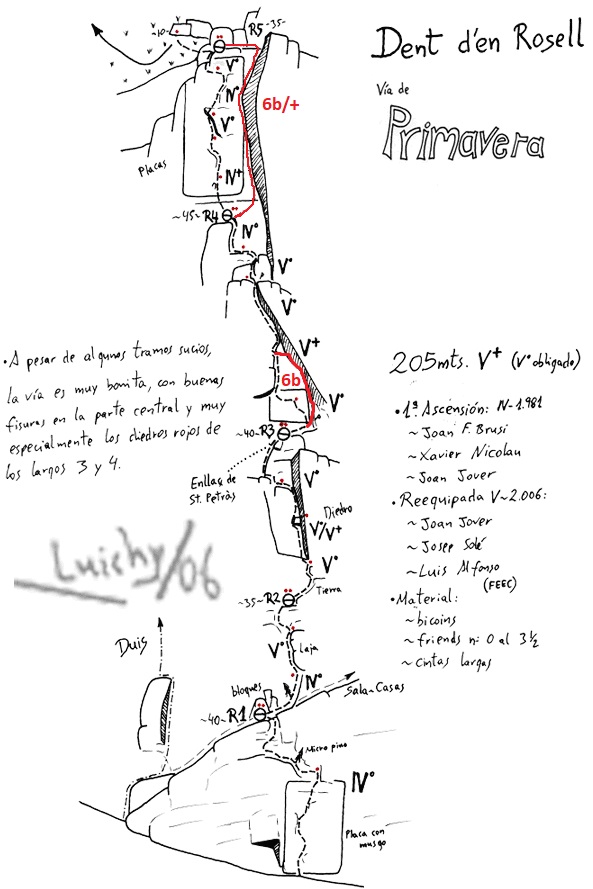 Dent d'en Rosell
Vía de
Primavera
~10~
R5~35~
V°
IV°
6b/+
V°
Placas
IV+
~45~R4
IV°
V°
V°
V+
6b
V°
• A pesar de algunos tramos sucios,
la vía es muy bonita, con buenas
fisuras en la parte central y muy
especialmente los diedros rojos de
los largos 3 y 4.
205mts. V+ (V° obligado)
• 1ª Ascensión: IV-1.981
~ Joan F. Brusi
~ Xavier Nicolau
~ Joan Jover
• Reequipada V~2.006:
~ Joan Jover
~ Josep Solé
~ Luis Alfonso
(FEEC)
• Material:
~ bicoins
~ friends nº 0 al 3½
~ cintas largas
~40~R3
Enllaç de
St. Petràs
V°
Diedro
V°/V+
V°
Tierra
~35~R2
Luichy/06
V°
Laja
Duis
IV°
Sala~Casas
bloques
~40~R1
Micro pino
IV°
Placa con
musgo